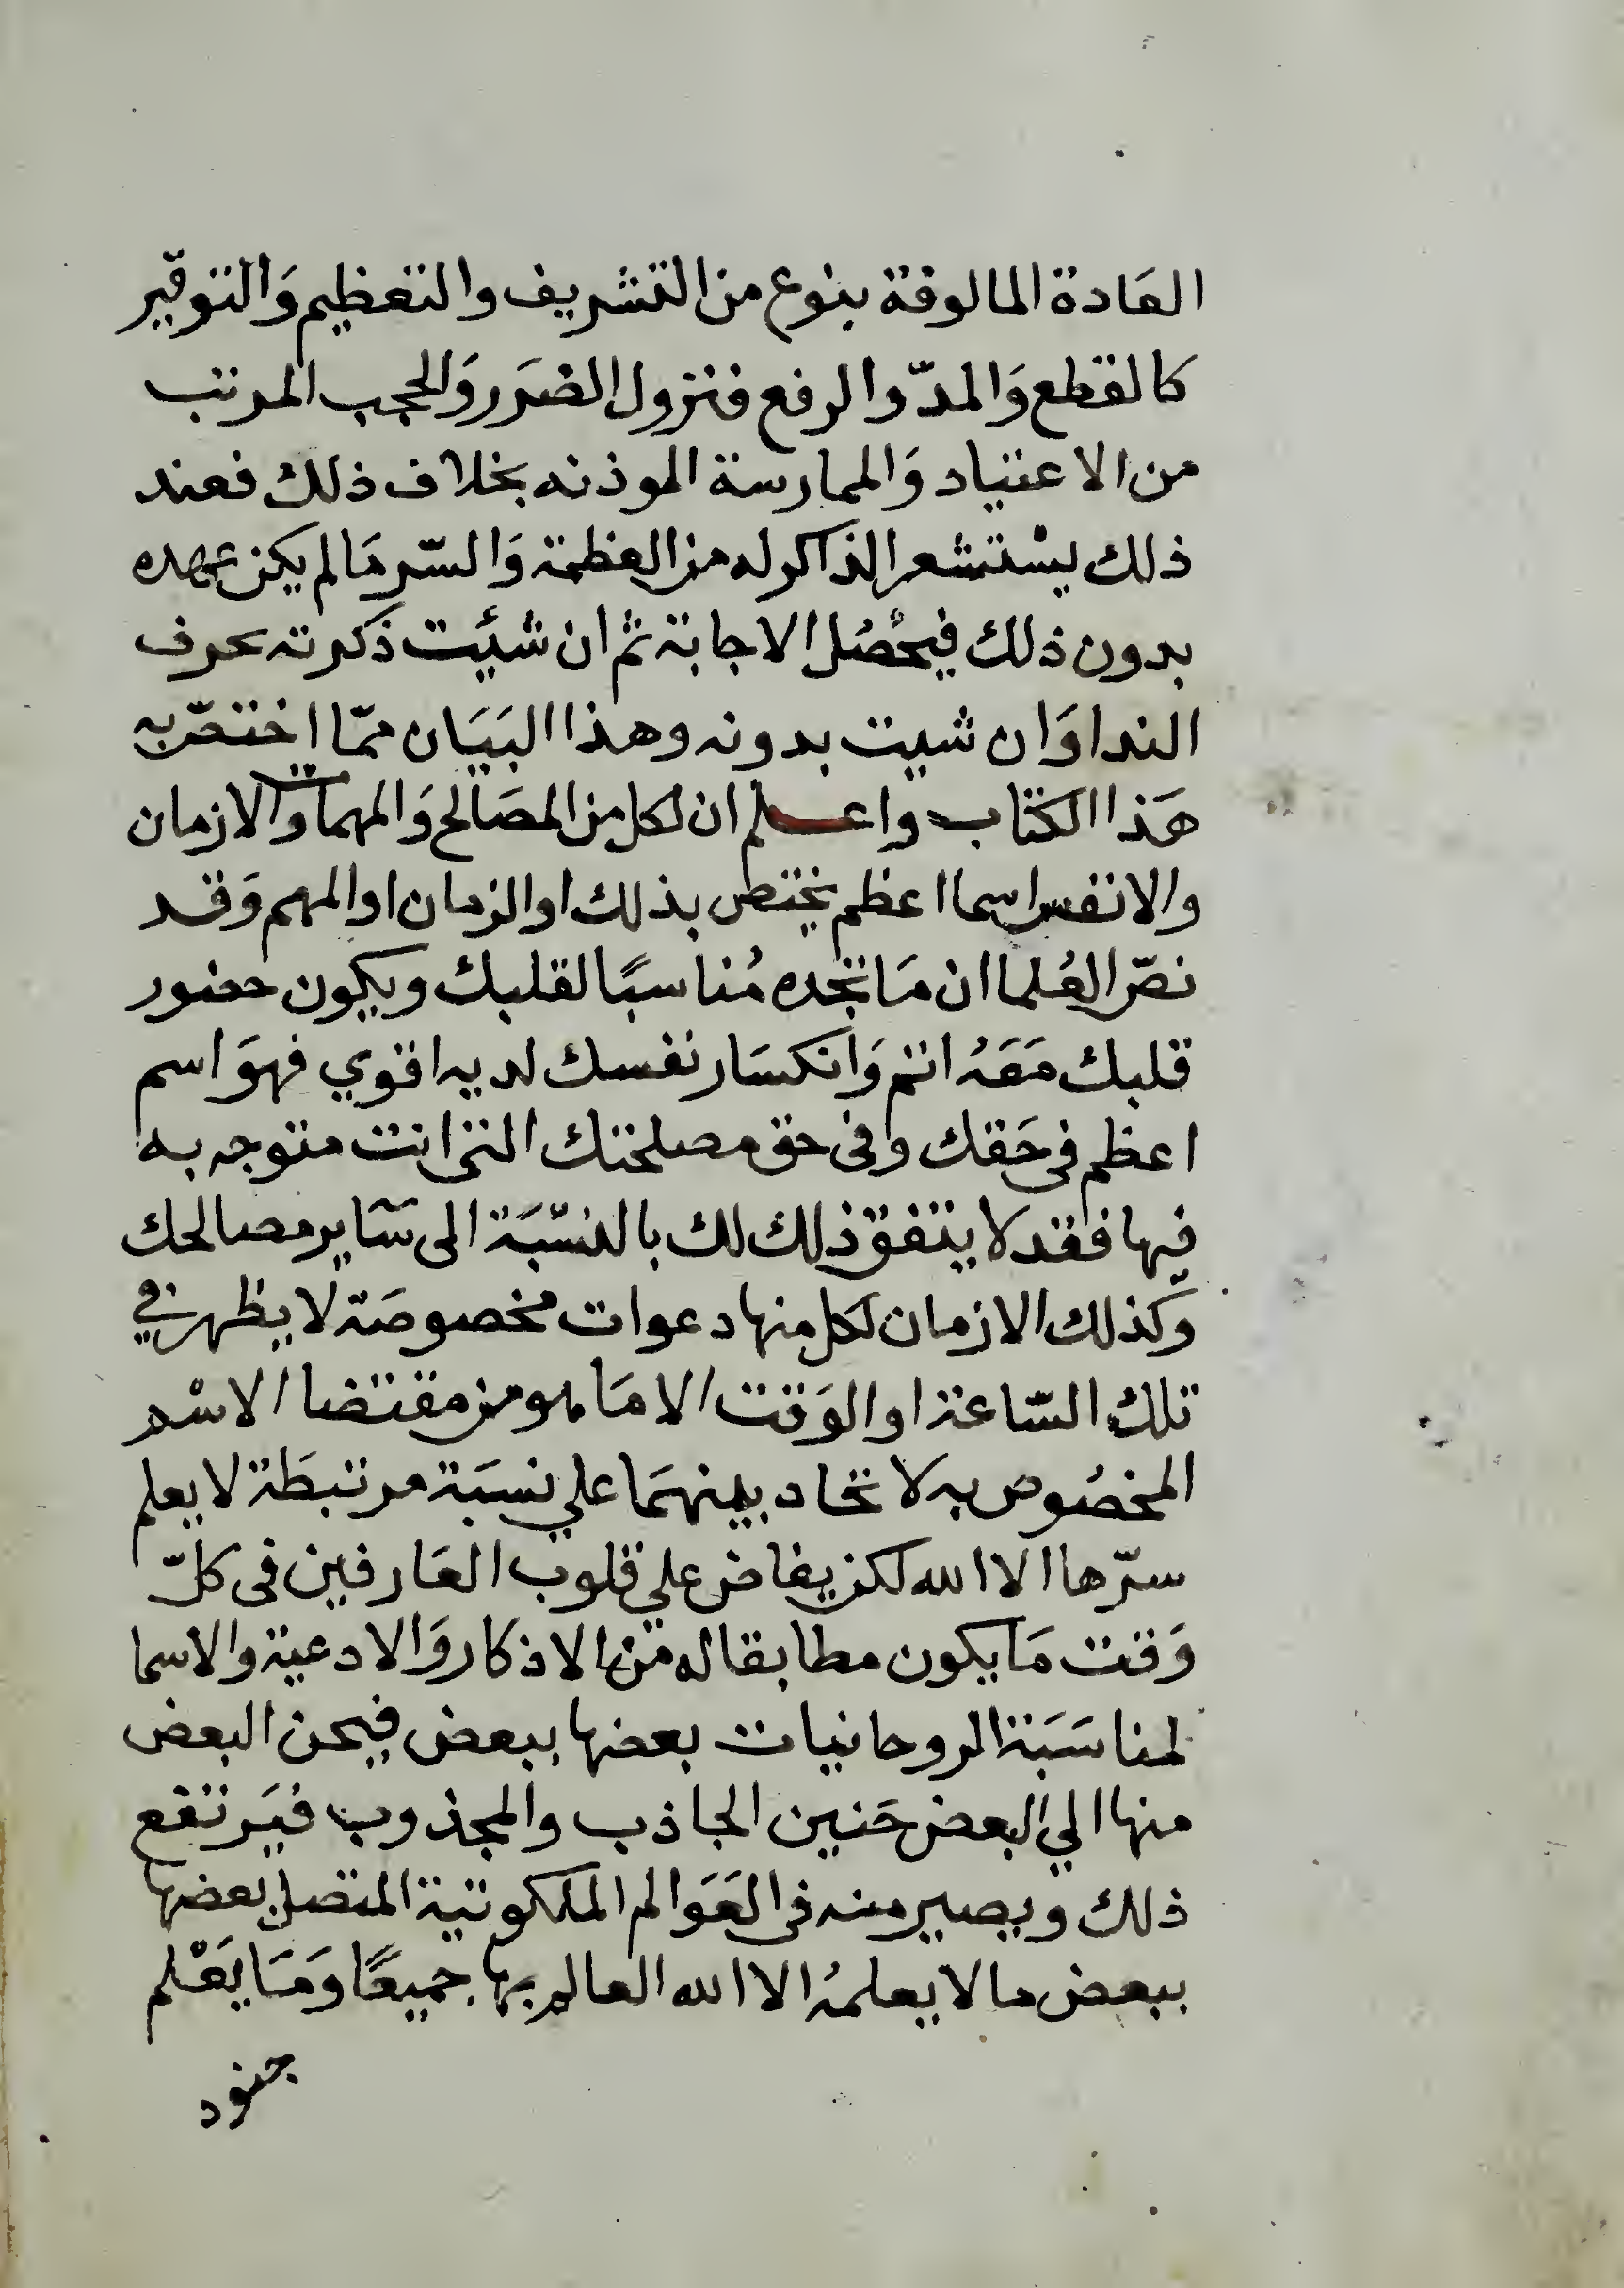 العَادة المالوفة بنوع من التشريف والتعظيم وَالتوقير
كالقطع وَالمدّ والرفع فتزول الضرَر وَالحجب المرتب
من الاعتياد وَالممارسة الموذنه بخلاف ذلك فعند
ذلك يسْتشعر الذاكر له من العظمة وَالسّر مَا لم يكن عهده
بدون ذلك فيحصُل الاجابة ثم ان شئت ذكرته بحرف
الندا وَان شيت بدونه وهذا البَيَان ممّا اختصّ به
هَذا الكتاب واعلم ان لكل من المصَالح وَالمهمات والازمان
والانفس اسما اعظم يختص بذلك او الزمان او المهم وَقد
نصّ العُلما ان مَا تجده مُناسبًا لقلبك ويكون حضور
قلبك مَعَهُ اتم وَانكسَار نفسك لديه اقوي فهوَ اسم
اعظم في حَقك وفي حق مصلحتك التي انت متوجه به
فيها فقد لا يتفق ذلك لك بالنسّبَة الى سَاير مصالحك
وَكذلك الازمان لكل منها دعوات مخصوصَة لا يظهر في
تلك السّاعة او الوَقت الا مَا هو من مقتضا الاسْم
المخصُوص به لاتحاد بينهمَا علي نسبَة مرتبطَة لا يعلم
سرّها الا الله لكن يفاض علي قلوب العَارفين في كلّ
وَقت مَا يكون مطابقا له من الاذكار وَالادعية والاسما
لمناسَبَة الروحانيات بعضها ببعض فيحن البعض
منها الي البعض حَنين الجاذب والمجذوب فيَرتفع
ذلك ويصير منه في العَوَالم الملكوتية المتصل بعضها
ببعض ما لا يعلمُه الا الله العالم بها جميعًا وَمَا يَعْلم
جنود